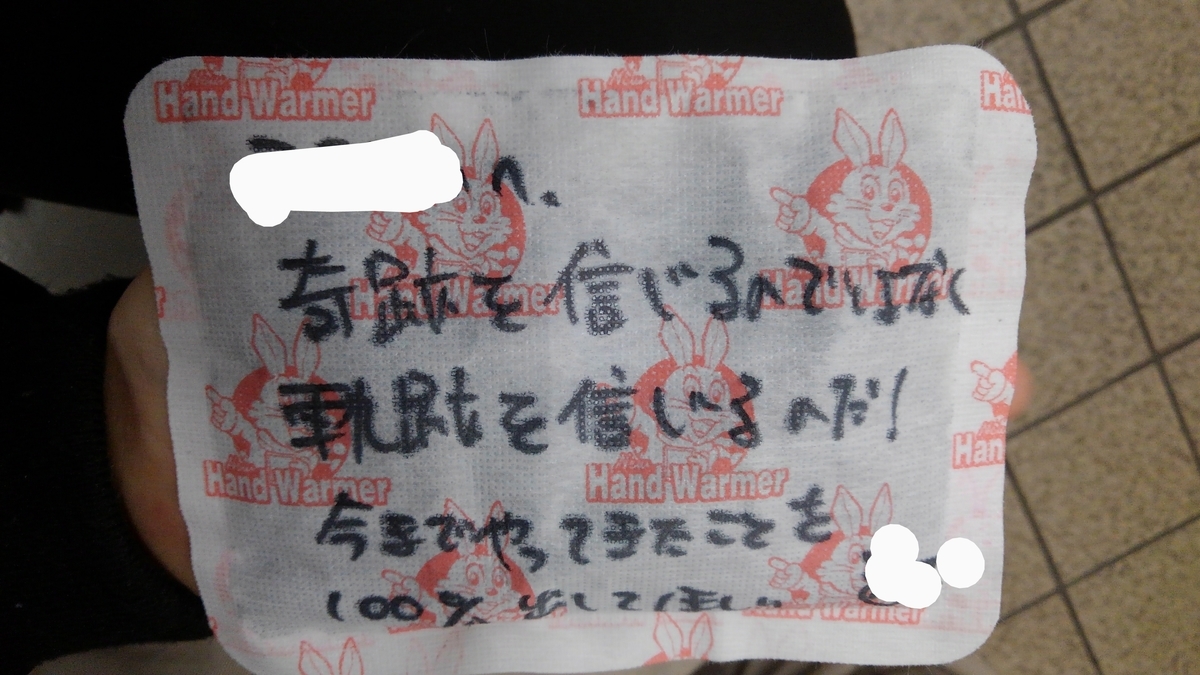 Hand Warmer
Hand Warmer
へ.
奇跡を信じるのではなく
Hand Warmer
Hand Warmer
軌跡を信じるのだ!
Hand Warmer
Hand Warmer
今までやってきたことを
100% 出してほしい